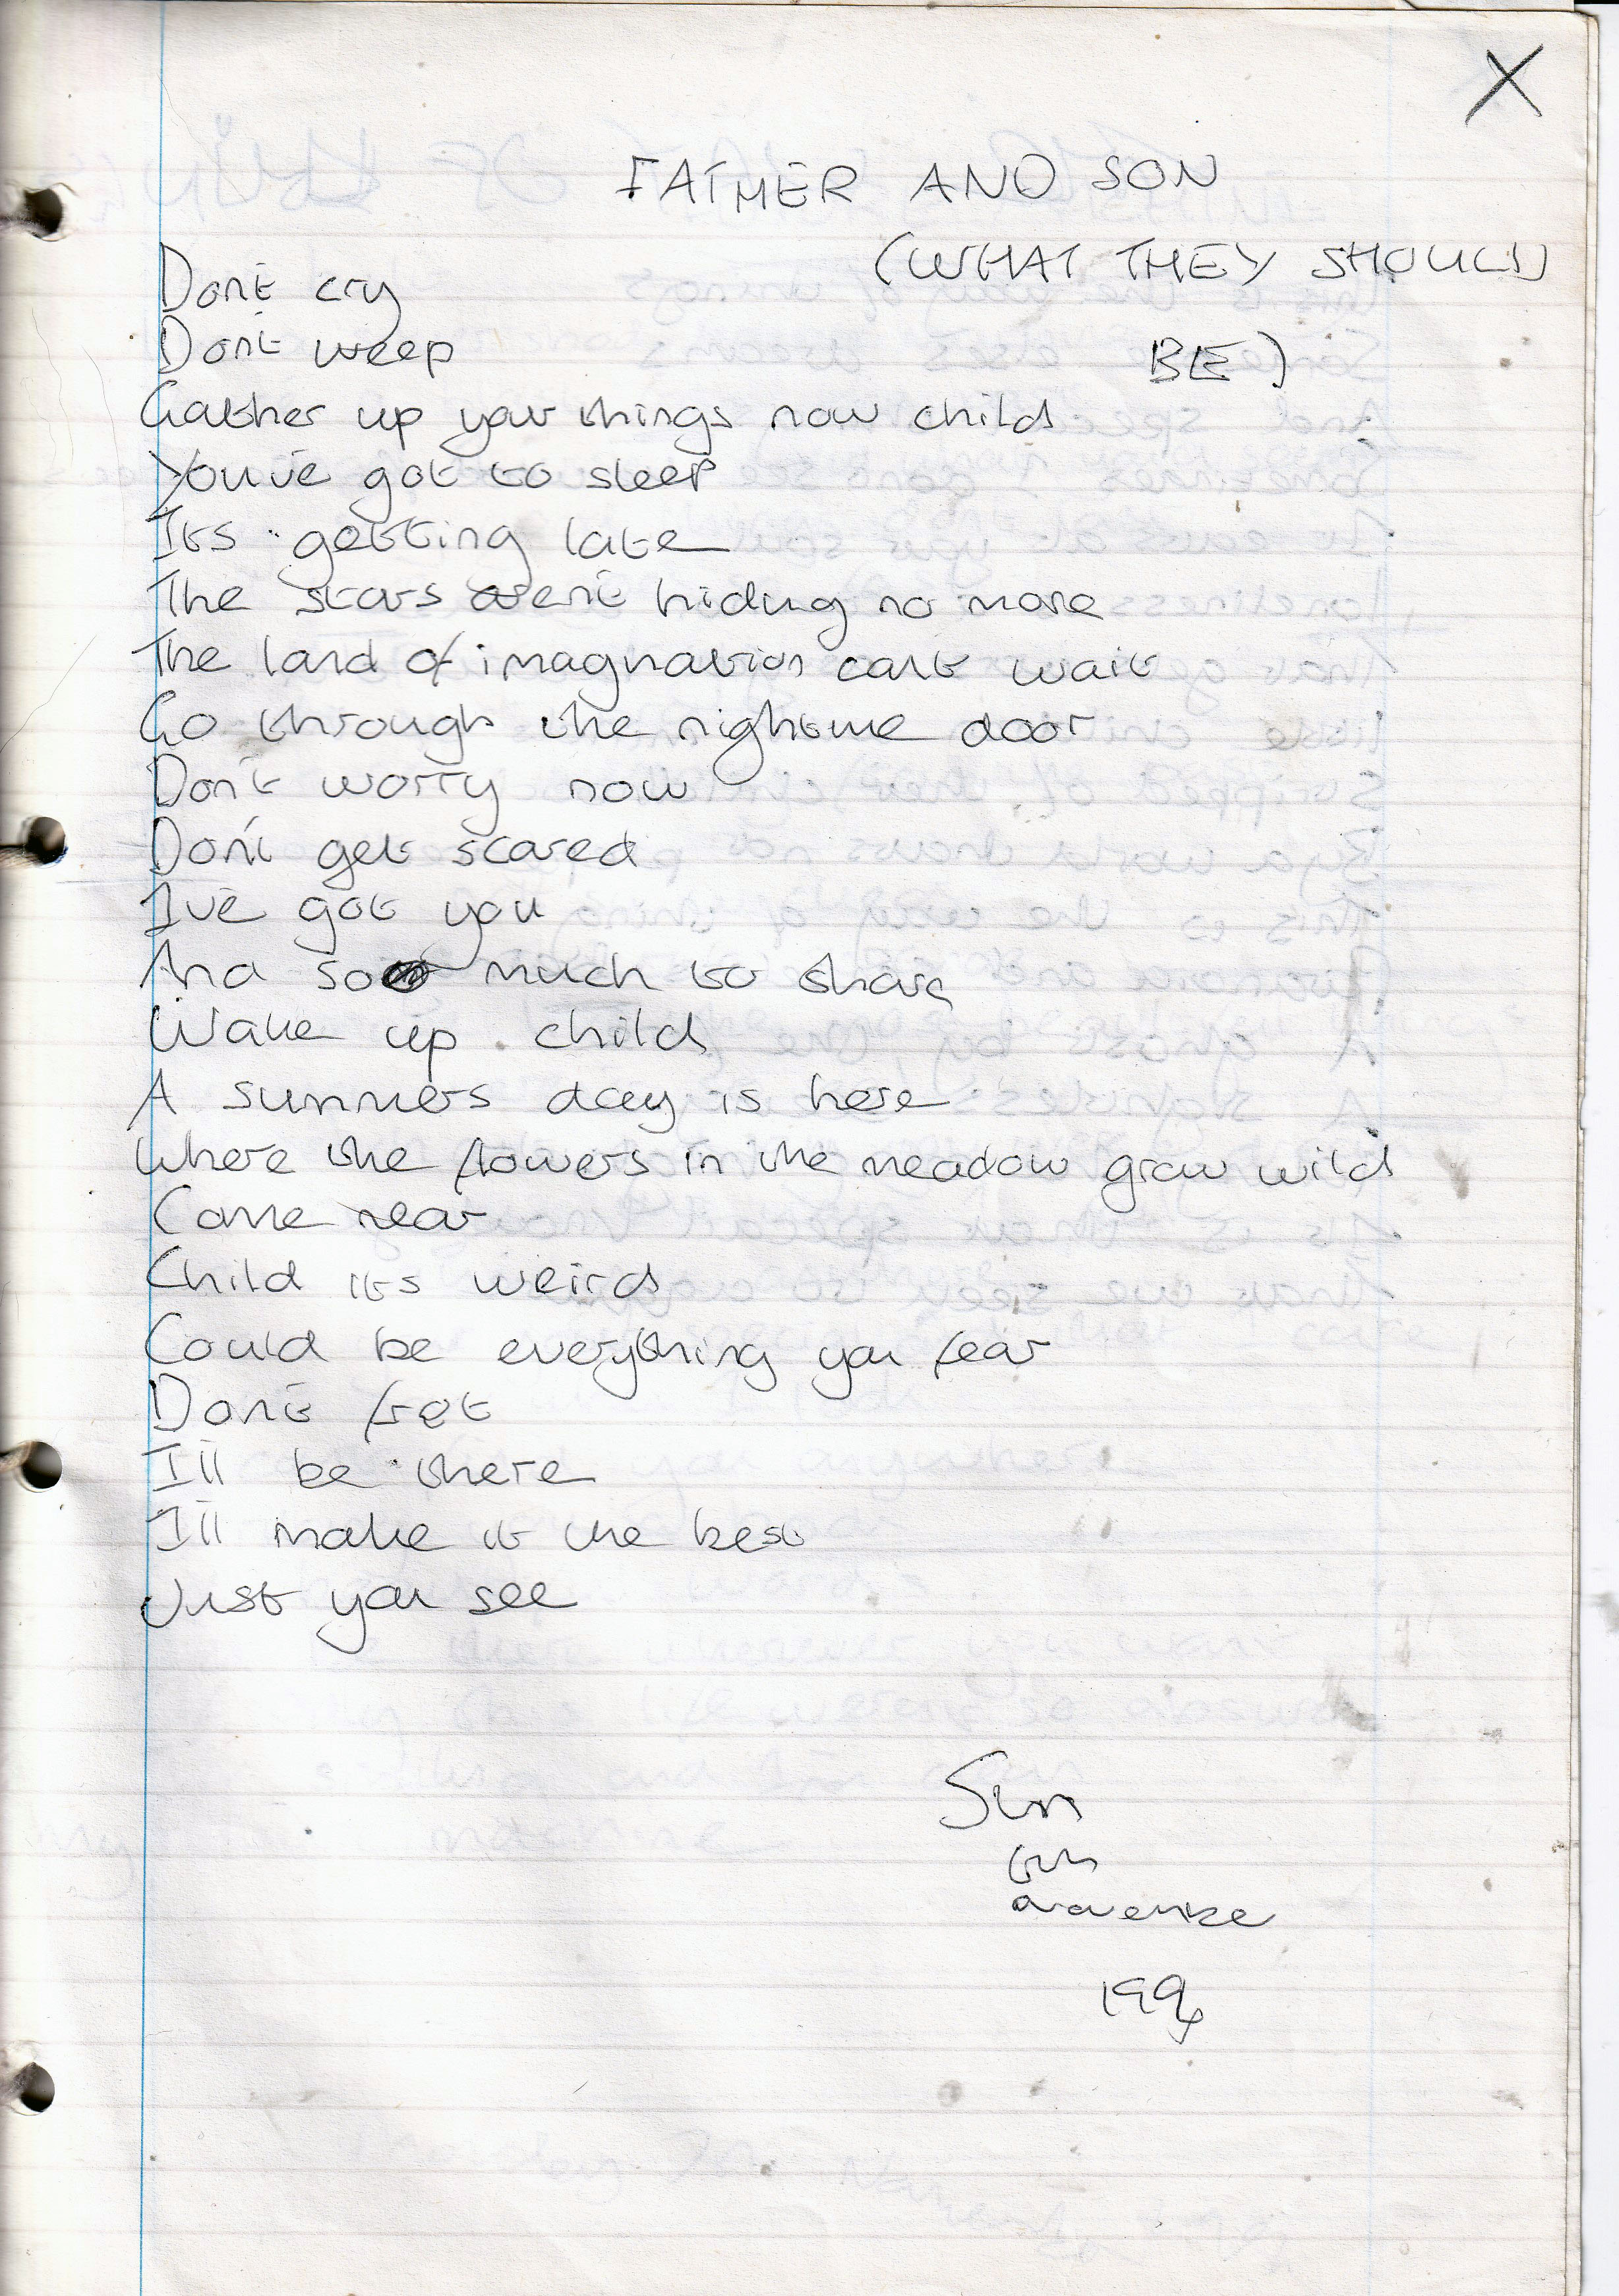 X
FATHER AND SON
(WHAT THEY SHOULD
BE)
Don't cry
Don't weep
Gather up your things now child
You've got to sleep
Its getting late
The stars aren't hiding no more
The land of imagnation can't wait
Go through the nightime door
Don't worry now
Don't get scared
I've got you
And so much to share
Wake up child
A summers day is here
Where the flowers in the meadow grow wild
Come near
Child its weird
Could be everything you fear
Don't fret
I'll be there
I'll make it the best
Just you see
Sun
199